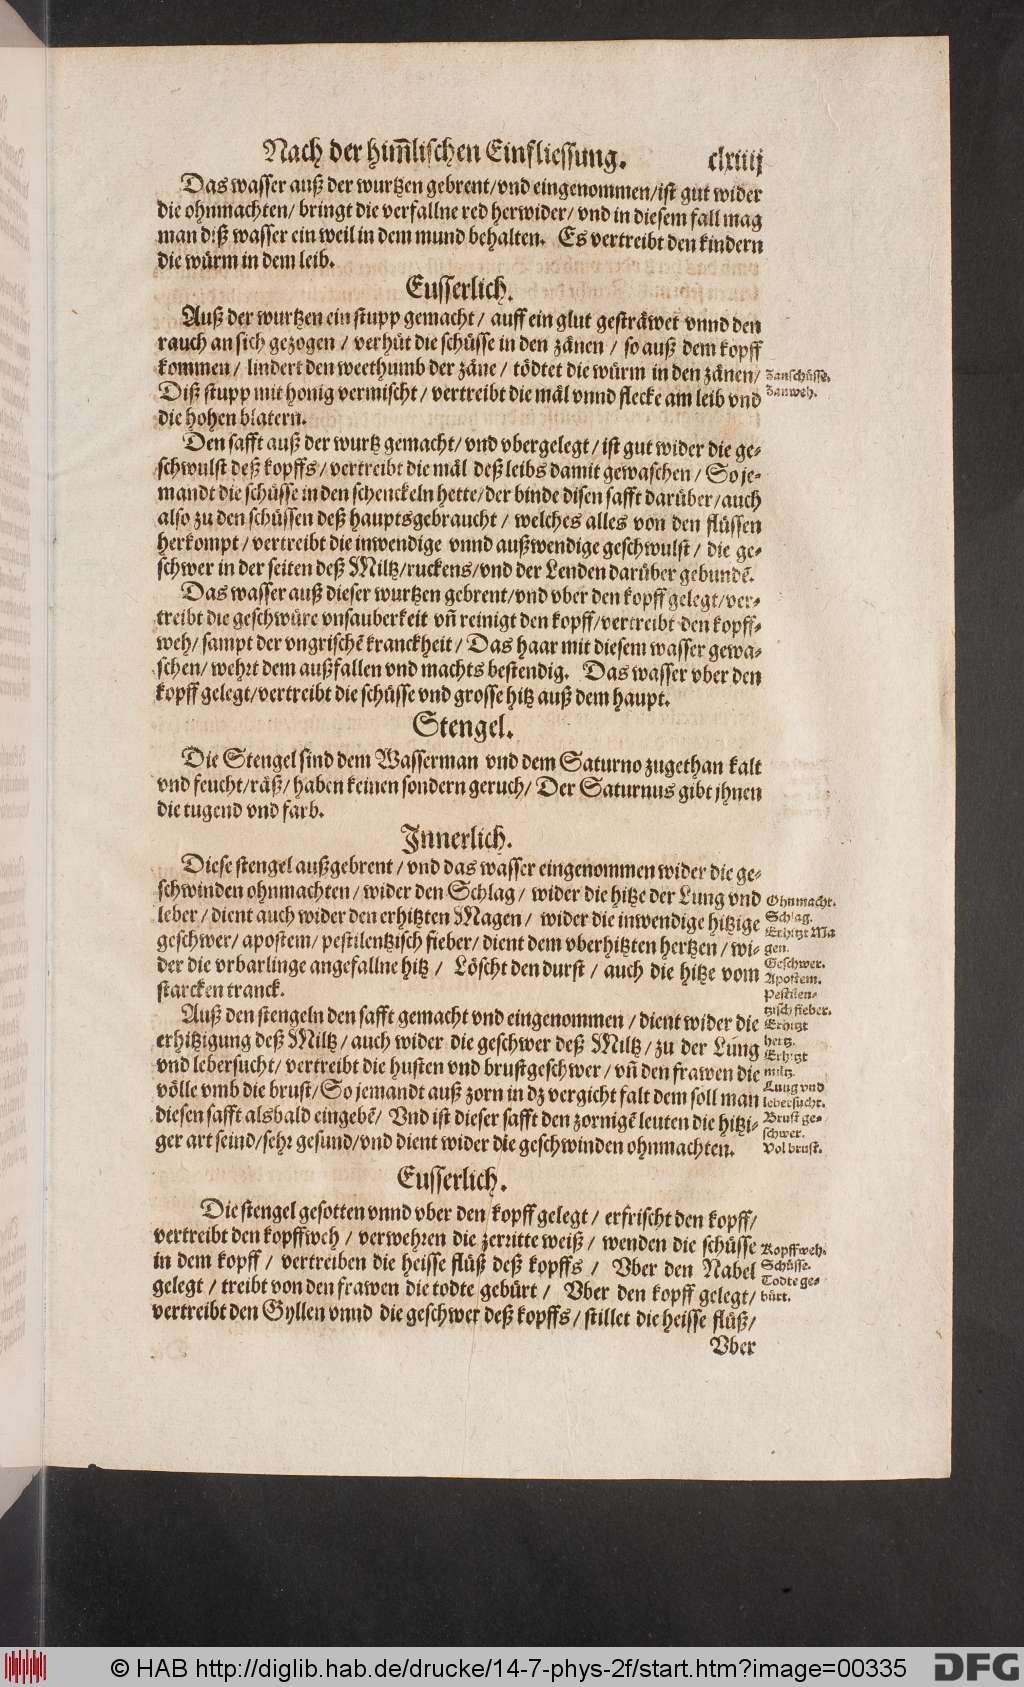 Nach der him̃lischen Einfliessung. clxiiij
Das wasser auß der wurtzen gebrent/vnd eingenommen/ist gut wider
die ohnmachten/ bringt die verfallne red herwider/ vnd in diesem fall mag
man diß wasser ein weil in dem mund behalten. Es vertreibt den kindern
die würm in dem leib.
Eusserlich.
Auß der wurtzen ein stupp gemacht/ auff ein glut gesträwet vnnd den
rauch an sich gezogen / verhüt die schüsse in den zänen / so auß dem kopff
kommen/ lindert den weethumb der zäne/ tödtet die würm in den zänen/
Diß stupp mit honig vermischt/ vertreibt die mäl vnnd flecke am leib vnd
die hohen blatern.
Zanschüsse.
Zanweh.
Den safft auß der wurtz gemacht/ vnd vbergelegt/ ist gut wider die ge-
schwulst deß kopffs/ vertreibt die mäl deß leibs damit gewaschen/ So je-
mandt die schüsse in den schenckeln hette/der binde disen safft darüber/auch
also zu den schüssen deß haupts gebraucht/ welches alles von den flüssen
herkompt/ vertreibt die inwendige vnnd außwendige geschwulst/ die ge-
schwer in der seiten deß Miltz/ruckens/vnd der Lenden darüber gebundẽ.
Das wasser auß dieser wurtzen gebrent/vnd vber den kopff gelegt/ver-
treibt die geschwüre vnsauberkeit vñ reinigt den kopff/vertreibt den kopff-
weh/ sampt der vngrischẽ kranckheit/ Das haar mit diesem wasser gewa-
schen/ wehrt dem außfallen vnd machts bestendig. Das wasser vber den
kopff gelegt/vertreibt die schüsse vnd grosse hitz auß dem haupt.
Stengel.
Die Stengel sind dem Wasserman vnd dem Saturno zugethan kalt
vnd feucht/räß/ haben keinen sondern geruch/ Der Saturnus gibt jhnen
die tugend vnd farb.
Jnnerlich.
Diese stengel außgebrent/ vnd das wasser eingenommen wider die ge-
schwinden ohnmachten/ wider den Schlag/ wider die hitze der Lung vnd
leber/ dient auch wider den erhitzten Magen/ wider die inwendige hitzige
geschwer/ apostem/ pestilentzisch fieber/ dient dem vberhitzten hertzen/ wi-
der die vrbarlinge angefallne hitz / Löscht den durst/ auch die hitze vom
starcken tranck.
Ohnmacht.
Schlag.
Erhitzt Ma
gen.
Geschwer.
Apostem.
Pestilen-
tzisch fieber.
Auß den stengeln den safft gemacht vnd eingenommen/ dient wider die
erhitzigung deß Miltz/ auch wider die geschwer deß Miltz/ zu der Lung
vnd lebersucht/ vertreibt die husten vnd brustgeschwer/ vñ den frawen die
völle vmb die brust/ So jemandt auß zorn in dz vergicht falt dem soll man
diesen safft alsbald eingebẽ/ Vnd ist dieser safft den zornigẽ leuten die hitzi-
ger art seind/sehr gesund/vnd dient wider die geschwinden ohnmachten.
Erhitzt
hertz.
Erhitzt
miltz.
Lung vnd
lebersucht.
Brust ge-
schwer.
Vol brust.
Eusserlich.
Die stengel gesotten vnnd vber den kopff gelegt/ erfrischt den kopff/
vertreibt den kopffweh/ verwehren die zerritte weiß/ wenden die schüsse
in dem kopff/ vertreiben die heisse flüß deß kopffs/ Vber den Nabel
gelegt/ treibt von den frawen die todte gebürt/ Vber den kopff gelegt/
vertreibt den Gyllen vnnd die geschwer deß kopffs/ stillet die heisse flüß/
Kopffweh.
Schüsse.
Todte ge-
bürt.
Vber
© HAB http://diglib.hab.de/drucke/14-7-phys-2f/start.htm?image=00335
DFG